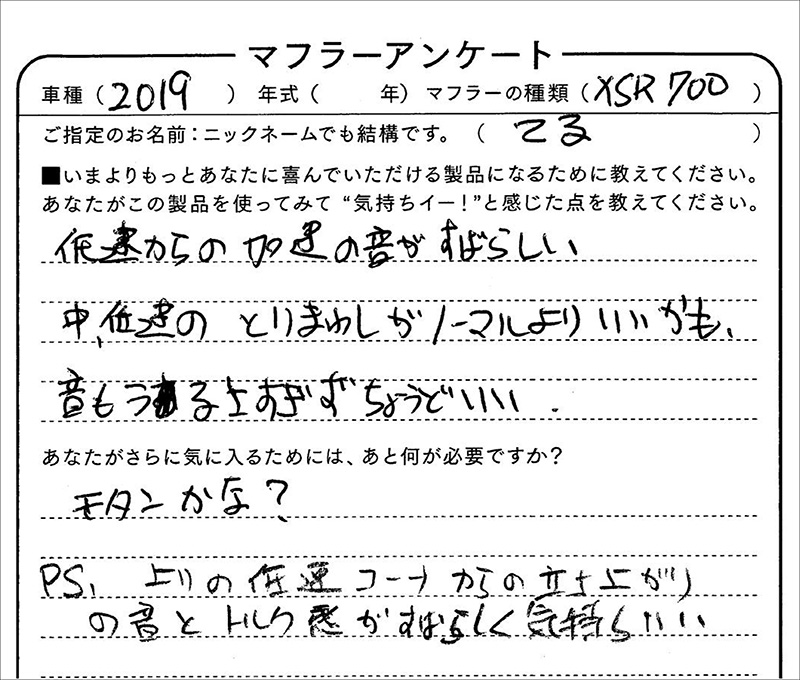 マフラーアンケート
車種（2019　）年式（　年）マフラーの種類（XSR 700　）
ご指定のお名前：ニックネームでも結構です。（ てる　）
■いまよりもっとあなたに喜んでいただける製品になるために教えてください。
あなたがこの製品を使ってみて“気持ちイー！”と感じた点を教えてください。
低速からの加速の音がすばらしい
中、低速の とりまわしがノーマルよりいいかも、
音もうるさすぎずちょうどいい．
あなたがさらに気に入るためには、あと何が必要ですか？
モタンかな？
PS、上りの低速コーナからの立ち上がり
の音とトルク感がすばらしく気持ちいい